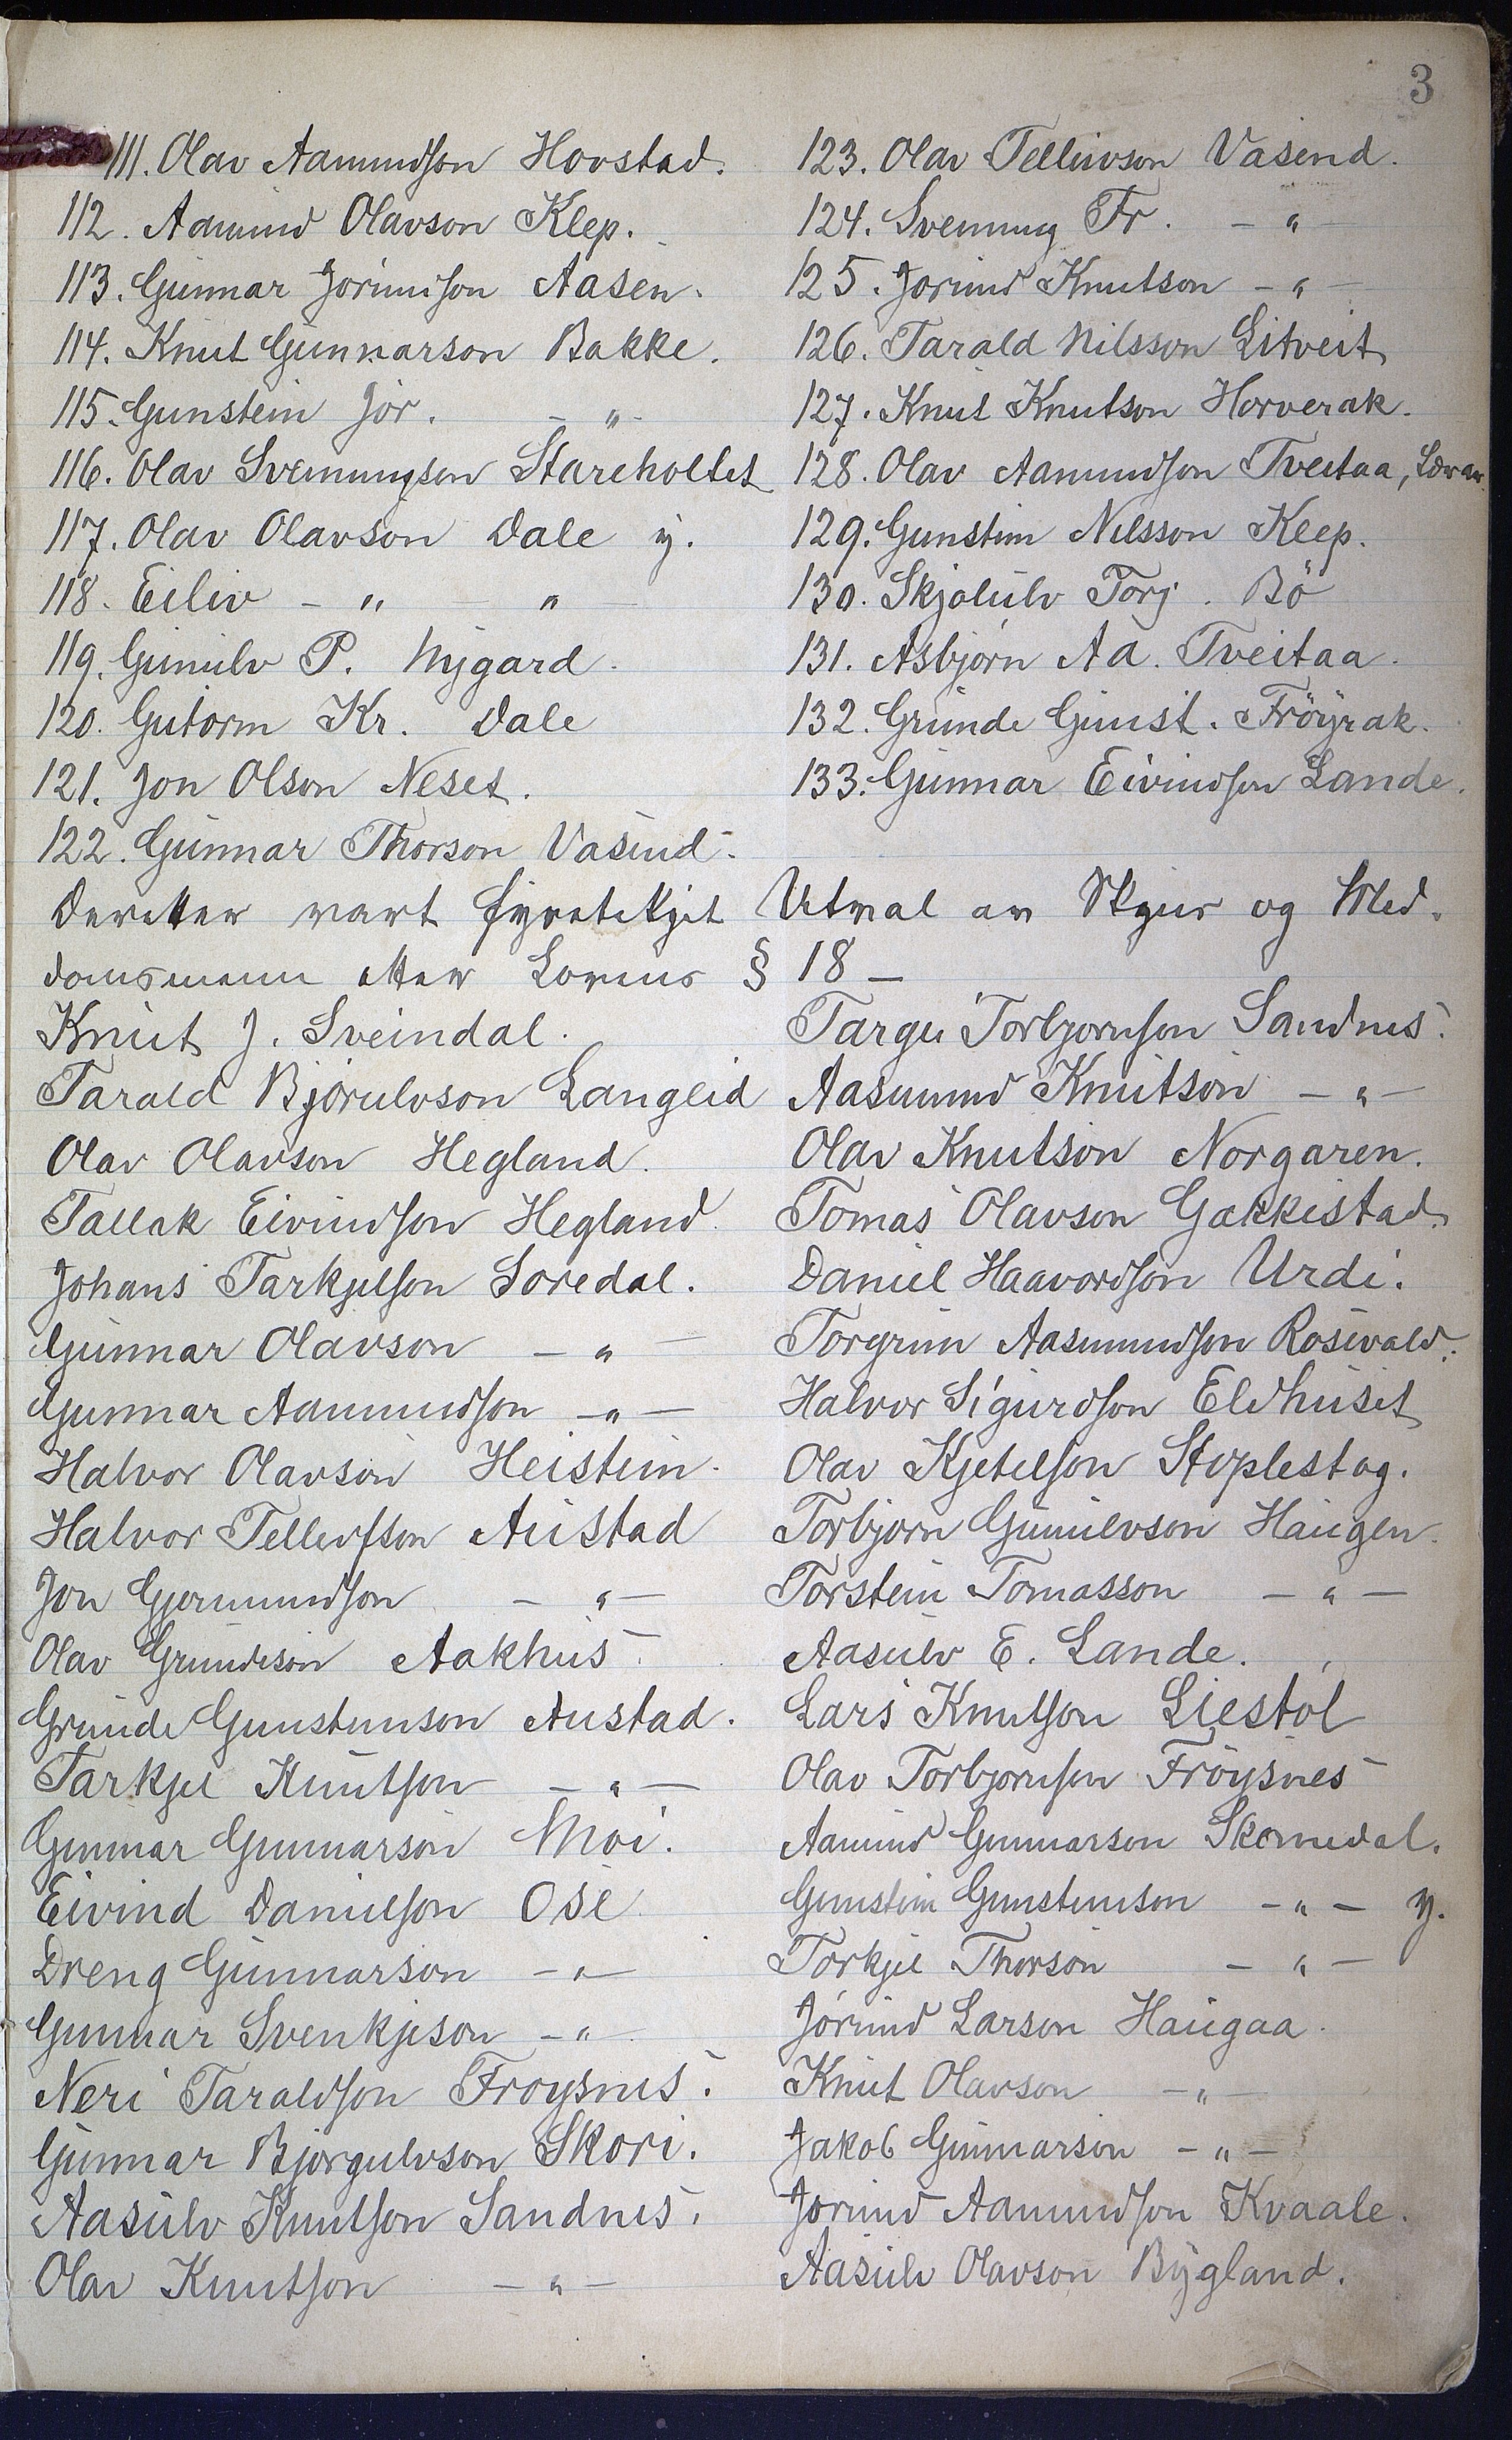 3
111. Olav Aamundson Hovstad.
112. Aamund Olavson Klep.
113. Gunnar Jorundson Aasen.
114. Knut Gunnarson Bakke.
115. Gunstein Jor. - " -
116. Olav Svenungson Stareholtet
117. Olav Olavson Dale y.
118. Eiliv - " - " -
119. Gunulv P. Nygard.
120. Gutorm Kr. Dale
121. Jon Olson Neset.
122. Gunnar Thorson Vasend.
123. Olav Tellevson Vasend.
124. Svenung Fr. - " -
125. Jorund Knutson - " -
126. Tarald Nilsson Litveit
127. Knut Knutson Horverak.
128. Olav Aamundson Tveitaa, Lærar.
129. Gunstein Nilsson Klep.
130. Skjølulv Torj. Bö
131. Asbjørn Aa. Tveitaa.
132. Grunde Gunst. Fröyrak.
133. Gunnar Eivindson Lande.
Deretter vart fyretekjet Utval av Skjøns og Med-
domsmenn etter Lovens § 18 -
Knut J. Sveindal.
Tarald Bjørulvson Langeid
Olav Olavson Hegland.
Tallak Eivindson Hegland.
Johans Tarkjelson Loredal.
Gunnar Olavson - " -
Gunnar Aamundson - " -
Halvor Olavson Heistein.
Halvor Tellefsson Austad
Jon Gjermundson - " -
Olav Grundeson Aakhus.
Grunde Gunsteinson Austad.
Tarkjel Knutson - " -
Gunnar Gunnarson Moi.
Eivind Danielson Ose
Dreng Gunnarson - " -
Gunnar Svenkjeson - " -
Neri Taraldson Froysnes.
Gunnar Bjørgulvson Skori.
Aasulv Knutson Sandnes.
Olav Knutson - " -
Targei Torbjørnson Sandnes.
Aasmund Knutson - " -
Olav Knutson Norgaren.
Tomas Olavson Gakkestad.
Daniel Haavordson Urdi.
Torgrim Aasmundson Rosevald.
Halvor Sigurdson Eldhuset
Olav Kjetelson Stoplestog.
Torbjørn Gunulvson Haugen.
Torstein Tomasson - " -
Aasulv E. Lande.
Lars Knutson Liestøl
Olav Torbjørnson Fröysnes
Aamund Gunnarson Skomedal.
Gunstein Gunsteinson - " - y.
Torkjel Thorson - " -
Jørund Larson Haugaa.
Knut Olavson - " -
Jakob Gunnarson - " -
Jorund Aamundson Kvaale.
Aasulv Olavson Bygland.